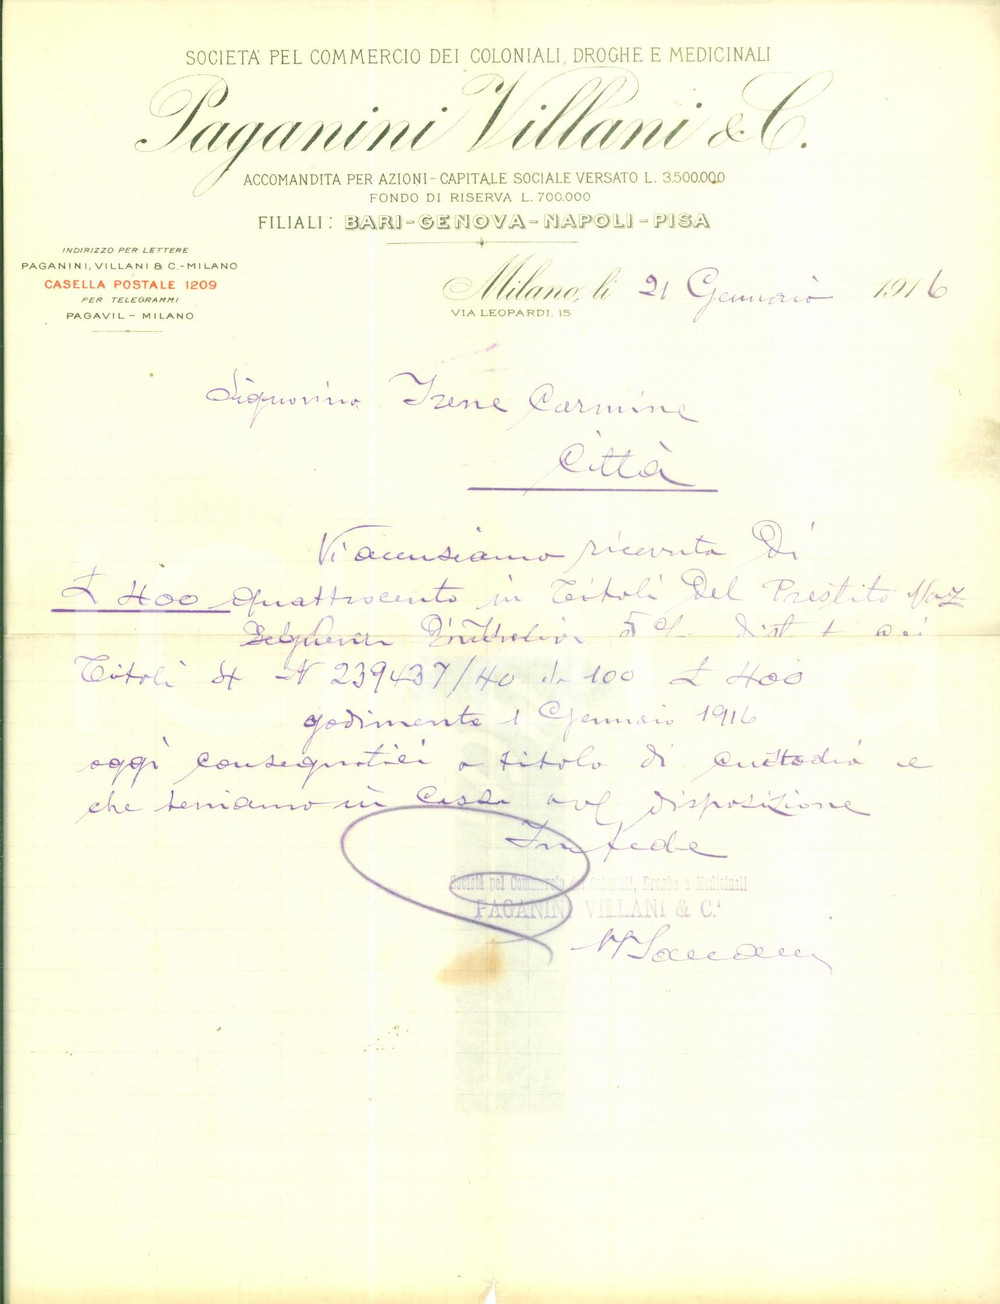 SOCIETÀ PEL COMMERCIO DEI COLONIALI, DROGHE E MEDICINALI
Paganini Villani & C.
ACCOMANDITA PER AZIONI - CAPITALE SOCIALE VERSATO L. 3.500.000
FONDO DI RISERVA L. 700.000
FILIALI: BARI - GENOVA - NAPOLI - PISA
INDIRIZZO PER LETTERE
PAGANINI, VILLANI & C. - MILANO
CASELLA POSTALE 1209
PER TELEGRAMMI
PAGAVIL - MILANO
Milano, li 21 Gennaio 1916
VIA LEOPARDI, 15
Signorina Irene Carmine
Città
Vi accusiamo ricevuta di
£ 400 quattrocento in Titoli del Prestito Naz
5%
Titoli 4 N 239437/40 da 100 £ 400
godimento 1 Gennaio 1916
oggi consegnatici a titolo di custodia e
che teniamo in Cassa a disposizione
In fede
Società pel Commercio dei Coloniali, Droghe e Medicinali
PAGANINI VILLANI & C.